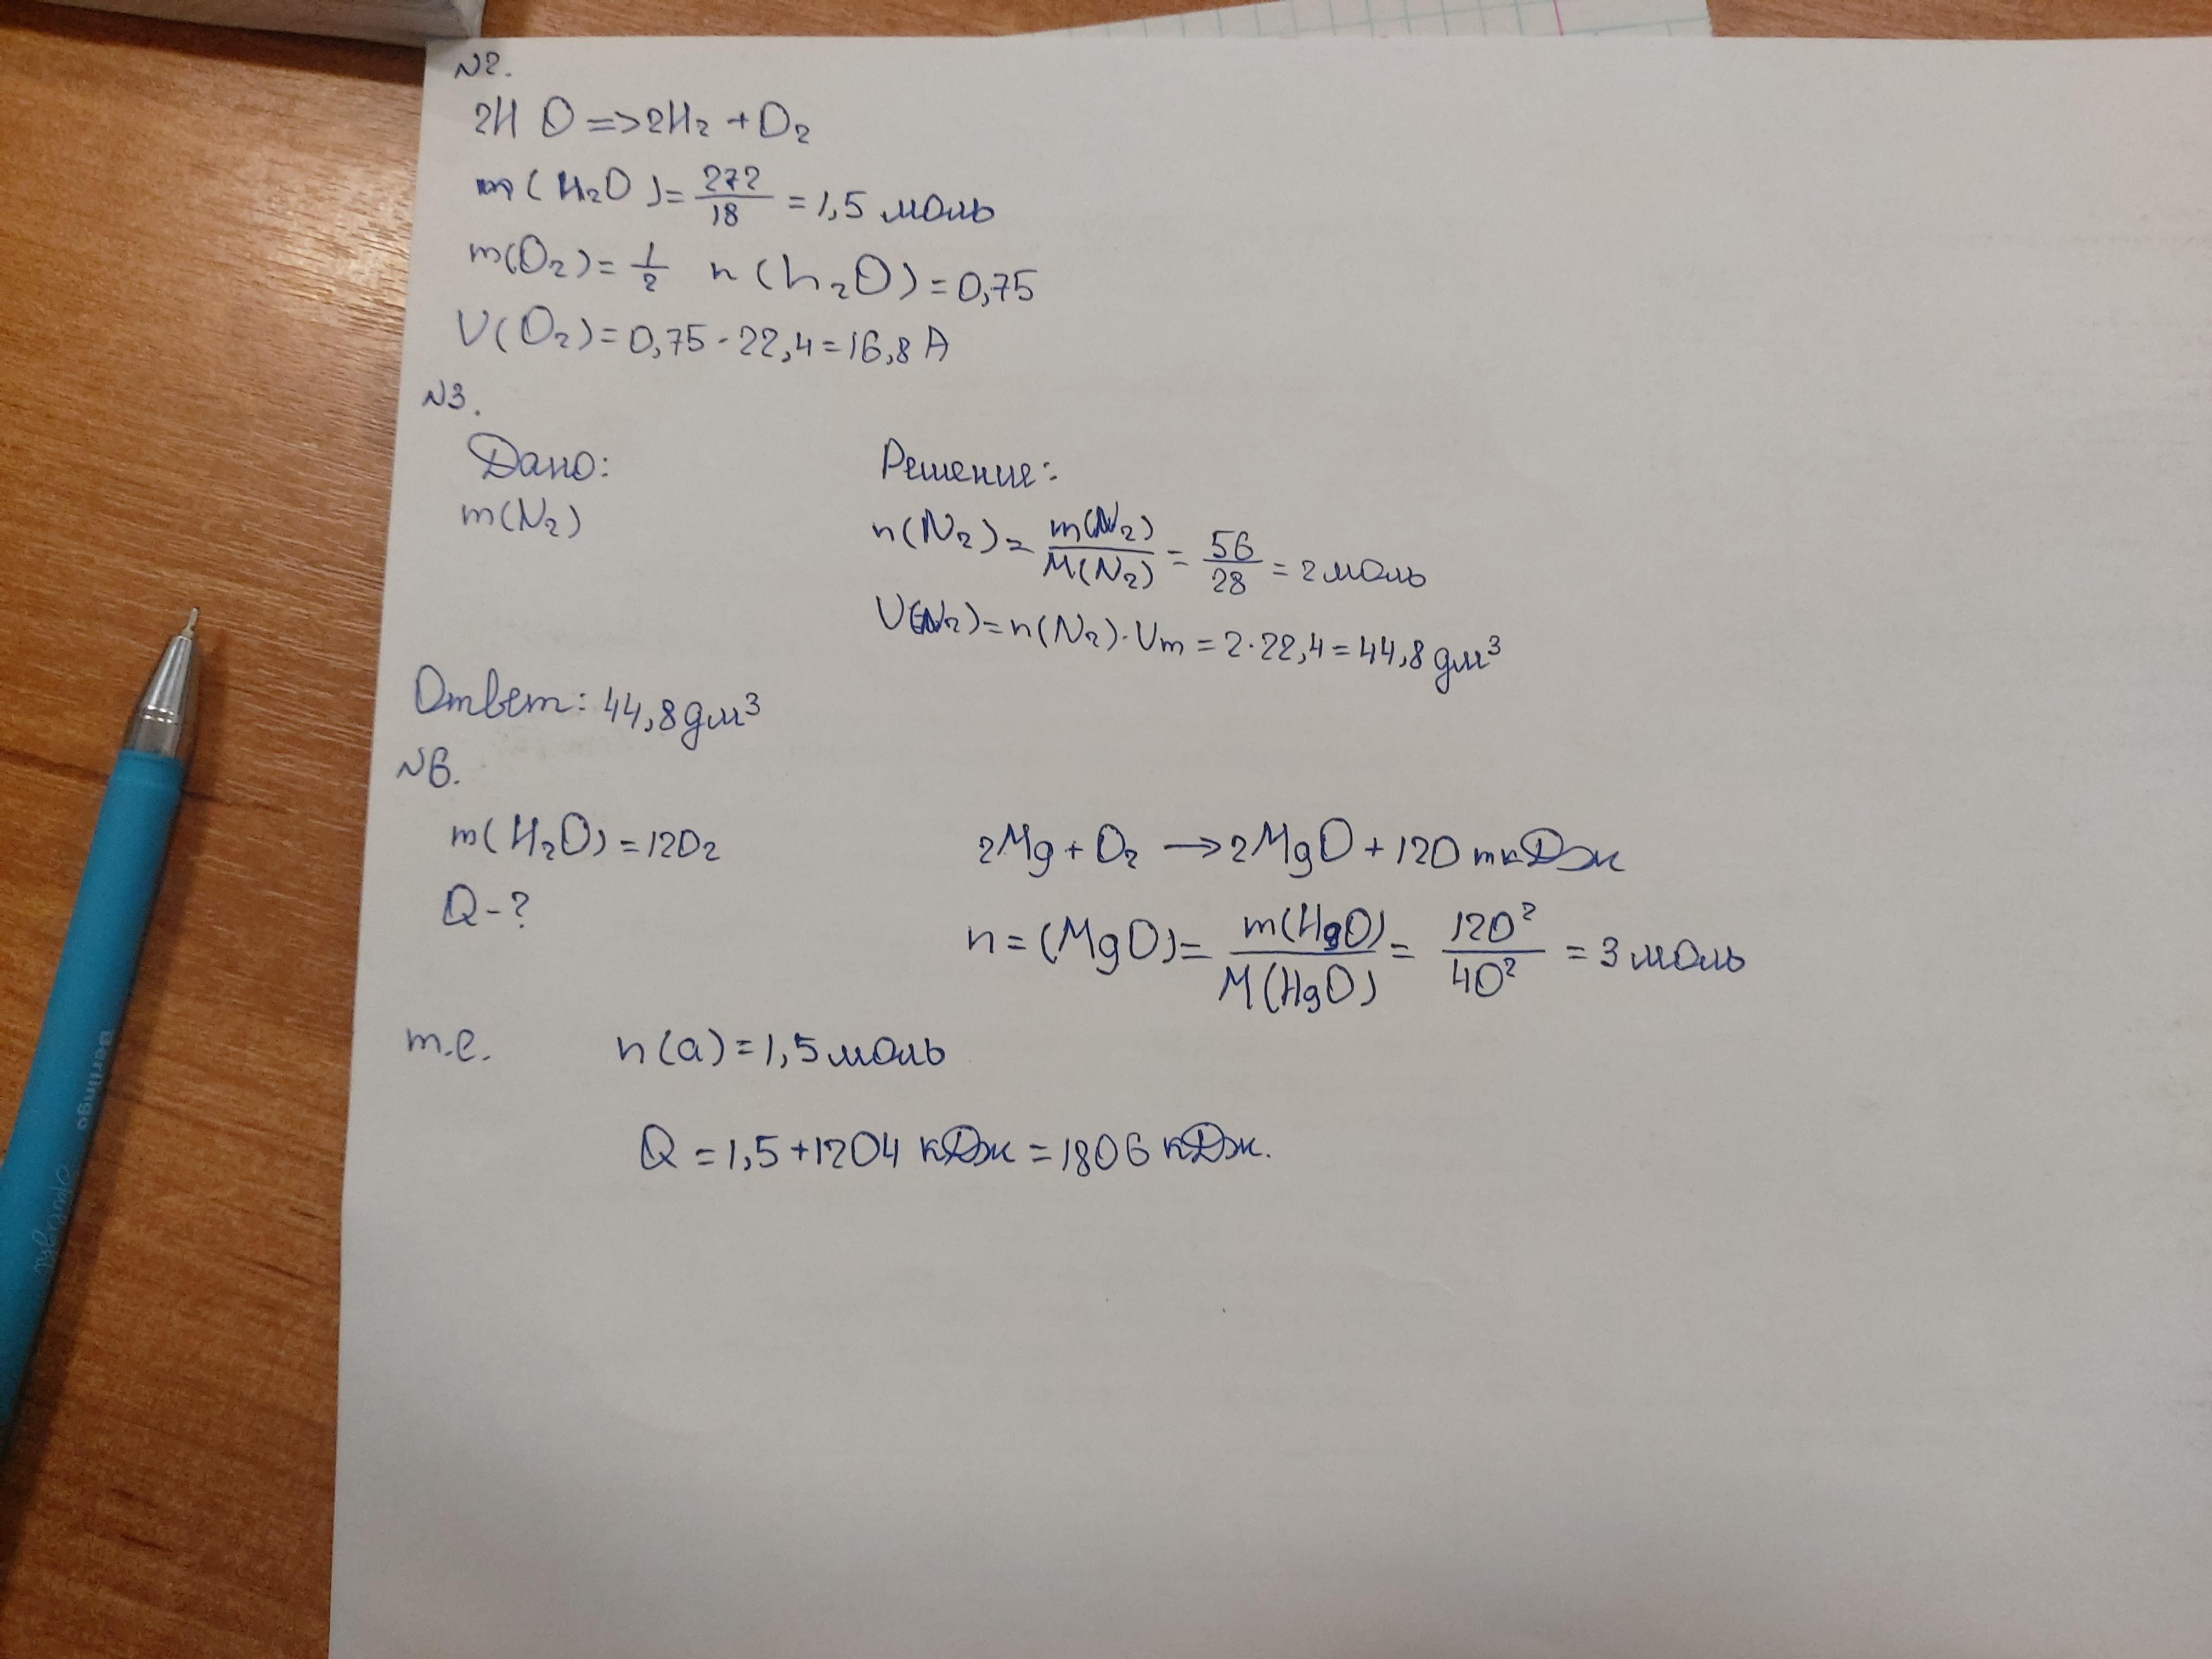 N2.
2H O => 2H₂ + O₂
m(H₂O) = 272/18 = 1,5 моль
m(O₂) = 1/2 n(h₂O) = 0,75
V(O₂) = 0,75 · 22,4 = 16,8 А
N3.
Дано: Решение:
m(N₂) n(N₂) = m(N₂)/M(N₂) = 56/28 = 2 моль
V(N₂) = n(N₂) · Vm = 2 · 22,4 = 44,8 дм³
Ответ: 44,8 дм³
N6.
m(H₂O) = 120г 2Mg + O₂ → 2MgO + 120 mкДж
Q - ?
n = (MgO) = m(HgO)/M(HgO) = 120²/40² = 3 моль
т.е. n(a) = 1,5 моль
Q = 1,5 + 1204 кДж = 1806 кДж.
Berlingo